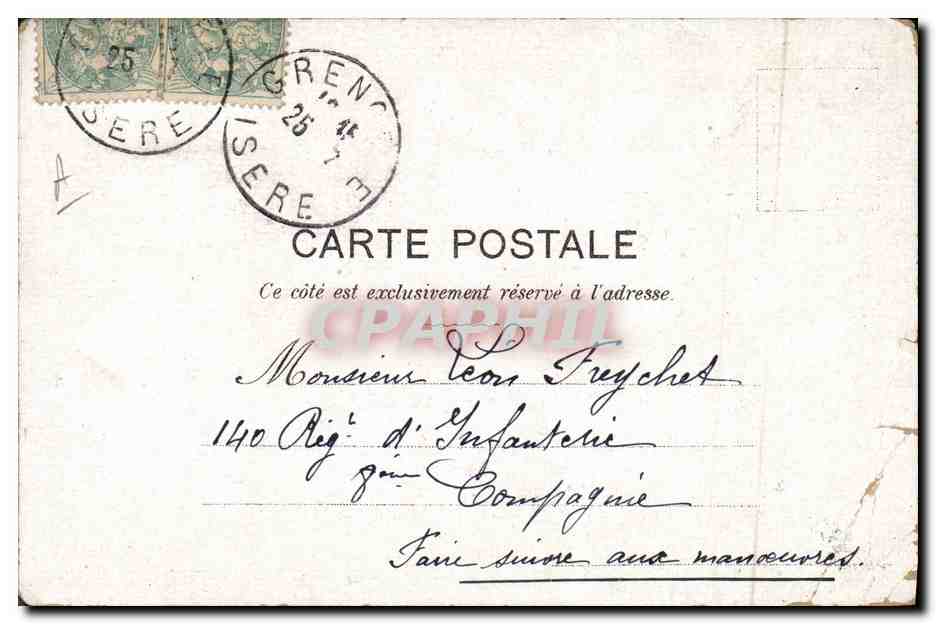 25
ISERE
GRENO
25
ISERE
A
CARTE POSTALE
Ce côté est exclusivement réservé à l'adresse.
CPAPHIL
Monsieur Léon Freychet
140 Régt d'Infanterie
Compagnie
Faire suivre aux manœuvres.